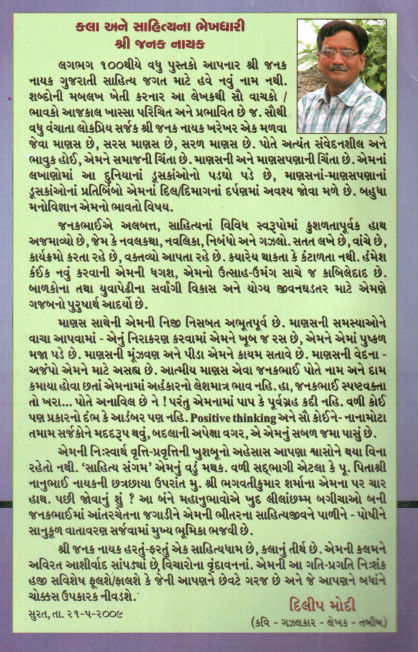 કલા અને સાહિત્યના ભેખધારી
શ્રી જનક નાયક
લગભગ ૧૦૦થીયે વધુ પુસ્તકો આપનાર શ્રી જનક
નાયક ગુજરાતી સાહિત્ય જગત માટે હવે નવું નામ નથી.
શબ્દોની મબલખ ખેતી કરનાર આ લેખકથી સૌ વાચકો /
ભાવકો આજકાલ ખાસ્સા પરિચિત અને પ્રભાવિત છે જ. સૌથી
વધુ વંચાતા લોકપ્રિય સર્જક શ્રી જનક નાયક ખરેખર એક મળવા
જેવા માણસ છે, સરસ માણસ છે, સરળ માણસ છે. પોતે અત્યંત સંવેદનશીલ અને
ભાવુક હોઈ, એમને સમાજની ચિંતા છે. માણસની અને માણસપણાની ચિંતા છે. એમનાં
લખાણોમાં આ દુનિયાનાં ડૂસકાંઓનો પડઘો પડે છે, માણસનાં-માણસપણાનાં
ડૂસકાંઓનાં પ્રતિબિંબો એમનાં દિલ/દિમાગનાં દર્પણમાં અવશ્ય જોવા મળે છે. બહુધા
મનોવિજ્ઞાન એમનો ભાવતો વિષય.
જનકભાઈએ અલબત્ત, સાહિત્યનાં વિવિધ સ્વરૂપોમાં કુશળતાપૂર્વક હાથ
અજમાવ્યો છે, જેમ કે નવલકથા, નવલિકા, નિબંધો અને ગઝલો. સતત લખે છે, વાંચે છે,
કાર્યક્રમો કરતા રહે છે, વક્તવ્યો આપતા રહે છે. ક્યારેય થાકતા કે કંટાળતા નથી. હંમેશ
કંઈક નવું કરવાની એમની ધગશ, એમનો ઉત્સાહ-ઉમંગ સાચે જ કાબિલેદાદ છે.
બાળકોના તથા યુવાપેઢીના સર્વાંગી વિકાસ અને યોગ્ય જીવનઘડતર માટે એમણે
ગજબનો પુરુષાર્થ આદર્યો છે.
માણસ સાથેની એમની નિજી નિસબત અભૂતપૂર્વ છે. માણસની સમસ્યાઓને
વાચા આપવામાં - એનું નિરાકરણ કરવામાં એમને ખૂબ જ રસ છે, એમને એમાં પુષ્કળ
મજા પડે છે. માણસની મૂંઝવણ અને પીડા એમને કાયમ સતાવે છે. માણસની વેદના -
અજંપો એમને માટે અસહ્ય છે. આત્મીય માણસ એવા જનકભાઈ પોતે નામ અને દામ
કમાયા હોવા છતાં એમનામાં અહંકારનો લેશમાત્ર ભાવ નહિ. હા, જનકભાઈ સ્પષ્ટવક્તા
તો ખરા... પોતે અનાવિલ છે ને ! પરંતુ એમનામાં પાપ કે પૂર્વગ્રહ કદી નહિ. વળી કોઈ
પણ પ્રકારનો દંભ કે આડંબર પણ નહિ. Positive thinking અને સૌ કોઈને- નાનામોટા
તમામ સર્જકોને મદદરૂપ થવું, બદલાની અપેક્ષા વગર, એ એમનું સબળ જમા પાસું છે.
એમની નિઃસ્વાર્થ વૃત્તિ-પ્રવૃત્તિની ખુશબૂનો અહેસાસ આપણા શ્વાસોને થયા વિના
રહેતો નથી. ‘સાહિત્ય સંગમ’ એમનું વડું મથક. વળી સદ્ભાગી એટલા કે પૂ. પિતાશ્રી
નાનુભાઈ નાયકની છત્રછાયા ઉપરાંત મુ. શ્રી ભગવતીકુમાર શર્માના એમના પર ચાર
હાથ. પછી જોવાનું શું ? આ બંને મહાનુભાવોએ ખુદ લીલાંછમ્મ બગીચાઓ બની
જનકભાઈમાં આંતરચેતના જગાડીને એમની ભીતરના સાહિત્યજીવને પાળીને - પોષીને
સાનુકૂળ વાતાવરણ સર્જવામાં મુખ્ય ભૂમિકા ભજવી છે.
શ્રી જનક નાયક હરતું-ફરતું એક સાહિત્યધામ છે, કલાનું તીર્થ છે. એમની કલમને
અવિરત આશીર્વાદ સાંપડ્યાં છે, વિચારોના વૃંદાવનનાં. એમની આ ગતિ-પ્રગતિ નિઃશંક
હજી સવિશેષ ફૂલશે/ફાલશે કે જેની આપણને છેવટે ગરજ છે અને જે આપણને બધાંને
ચોક્કસ ઉપકારક નીવડશે.
દિલીપ મોદી
સુરત, તા. ૨૧-૫-૨૦૦૯
(કવિ - ગઝલકાર - લેખક - તબીબ)